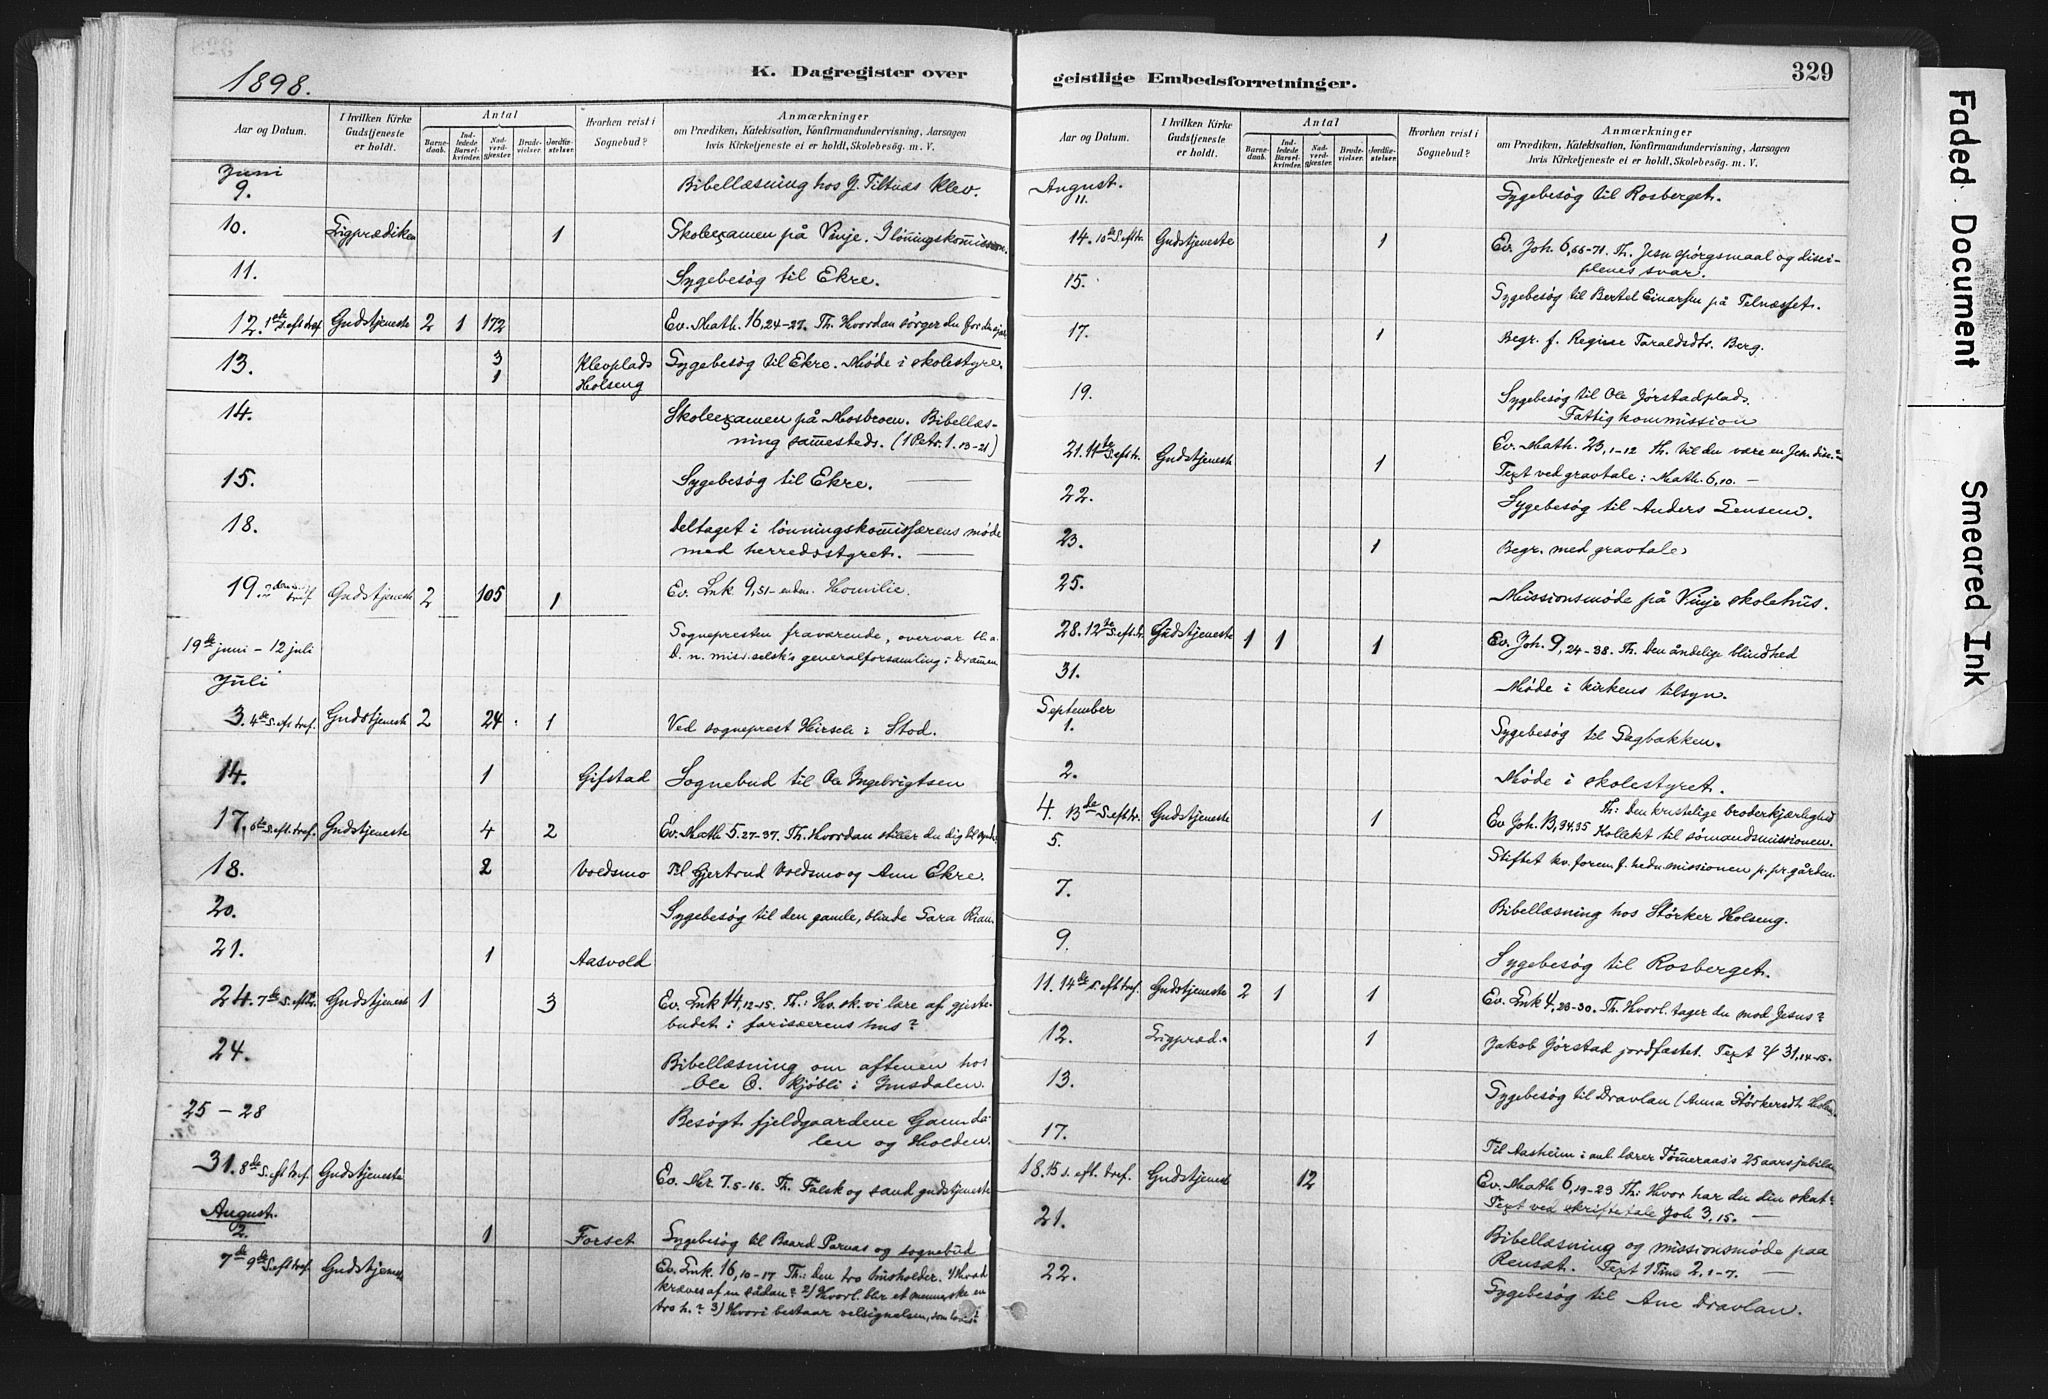 1898.
K. Dagregister over
Aar og Datum.
I hvilken Kirke Gudstjeneste er holdt.
Antal
Barne-daab.
Ind-ledede Barsel-kvinder.
Nad-verd-gjester.
Brude-vielser.
Jordfæ-stelser.
Hvorhen reist i Sognebud?
Anmærkninger
om Prædiken, Katekisation, Konfirmandundervisning, Aarsagen
hvis Kirketjeneste ei er holdt, Skolebesög. m. V.
Juni
9. Bibellæsning hos J. Tiltnæs Klev.
10. Ligprædiken 1 Skoleexamen på Vinje. I lönningskommissionen.
11. Sygebesøg til Ekre.
12. 1ste S. eft. tref. Gudstjeneste 2 1 172 Ev. Math. 16,24-27. Th. Hvordan sørger du for din sjæl
13. 3 Klevplads Sygebesøg til Ekre. Møde i skolestyre.
1 Holseng
14. Skoleexamen på Mosbroen. Bibellæs-
ning sammesteds. (1 Petr. 1. 13-21)
15. Sygebesøg til Ekre.
18. Deltaget i lønningskommissærens møde
med herredsstyret.
19. 2den S. e. tref. Gudstjeneste 2 105 1 Ev. Luk 9,51-enden. Homilie.
19de juni - 12 juli Sognepresten fraværende, overvar bl. a.
D. n. mis. selsk's generalforsamling i Drammen
Juli
3. 4de S. eft. tref. Gudstjeneste 2 24 1 Ved sogneprest Hirsch i Stod.
14. 1 Gifstad Sognebud til Ole Ingebrigtsen
17. 6te S. eft. tref. Gudstjeneste 4 2 Ev. Math 5.27-37. Th. Hvordan stiller du dig til
18. 2 Voldsmo Til Gjertrud Voldsmo og Ane Ekre.
20. Sygebesøg til den gamle, blinde Sara
21. 1 Aasvold
24. 7de S. eft. tr. Gudstjeneste 1 3 Ev. Luk 14,12-15. Th: Hv. sk. vi lære af gjeste-
budet i farisæerens hus?
24. Bibellæsning om aftenen hos
Ole O. Kjøbli i Imsdalen.
25 - 28 Besøgt fjeldgaardene Gaundа-
len og Holden.
31. 8de S. eft. tref. Gudstjeneste Ev. Mr. 7.5-16. Th. Falsk og sand gudstjeneste
August.
2. 1 Forset Sygebesøg til Baard Parnas og sognebud
7de 9de S. eft. tref. Gudstjeneste Ev. Luk. 16,10-17 Th: Den tro husholder. 1) Hvad
kræves af en sådan? 2) Hvorl. blir et menneske en
tro h.? 3) Hvori bestaar velsignelsen, som
geistlige Embedsforretninger.
329
Aar og Datum.
I hvilken Kirke Gudstjeneste er holdt.
Antal
Barne-daab.
Ind-ledede Barsel-kvinder.
Nad-verd-gjester.
Brude-vielser.
Jordfæ-stelser.
Hvorhen reist i Sognebud?
Anmærkninger
om Prædiken, Katekisation, Konfirmandundervisning, Aarsagen
hvis Kirketjeneste ei er holdt, Skolebesög. m. V.
August.
11. Sygebesøg til Rosberget.
14. 10de S. eft. tr. Gudstjeneste 1 Ev. Joh. 6,66-71. Th. Jesu spørgsmaal og disci-
plenes svar.
15. Sygebesøg til Bertel Einarsen på Telnesset.
17. 1 Begr. f. Regine Taraldsdtr. Berg.
19. Sygebesøg til Ole Jørstadplads.
Fattigkommission
21. 11te S. eft. tr. Gudstjeneste 1 Ev. Math. 23,1-12 Th. Vil du være en Jesu disc.?
Text ved gravtale: Math. 6,10.
22. Sygebesøg til Anders Lensem.
23. 1 Begr. med gravtale
25. Missionsmøde på Vinje skolehus.
28. 12te S. eft. tr. Gudstjeneste 1 1 1 Ev. Joh. 9,24-38. Th. Den åndelige blindhed
31. Møde i kirkens tilsyn.
September
1. Sygebesøg til Bagbakken.
2. Møde i skolestyret.
4. 13de S. eft. tr. Gudstjeneste 1 Th: Den kristelige broderkjærlighed
Ev Joh. 13,34,35 Kollekt til sømandsmissionen.
5. Stiftet kv. foren. f. hednmissionen p. pr. gården.
7. Bibellæsning hos Størker Holseng.
9. Sygebesøg til Rosberget.
11. 14de S. eft. tref. Gudstjeneste 2 1 1 Ev. Luk 4,23-30. Th. Hvorl. tager du mod Jesus?
12. Ligpræd. 1 Jakob Jørstad jordfæstet. Text ψ 31,14-15.
13. Sygebesøg til Dravlan (Anna Størkersdt.
17. Til Aasheim i anl. lærer Tømmeraas's 25 aarsjubilæum
18. 15 S. eft. tref. Gudstjeneste 12 Ev. Math 6,19-23 Th. Hvor har du din skat?
Text ved skriftetale Joh 3,15.
21. Bibellæsning og missionsmøde paa
Rensæt. Text 1 Tim 2,1-7.
22. Sygebesøg til Ane Dravlan.
Faded Document
Smeared Ink